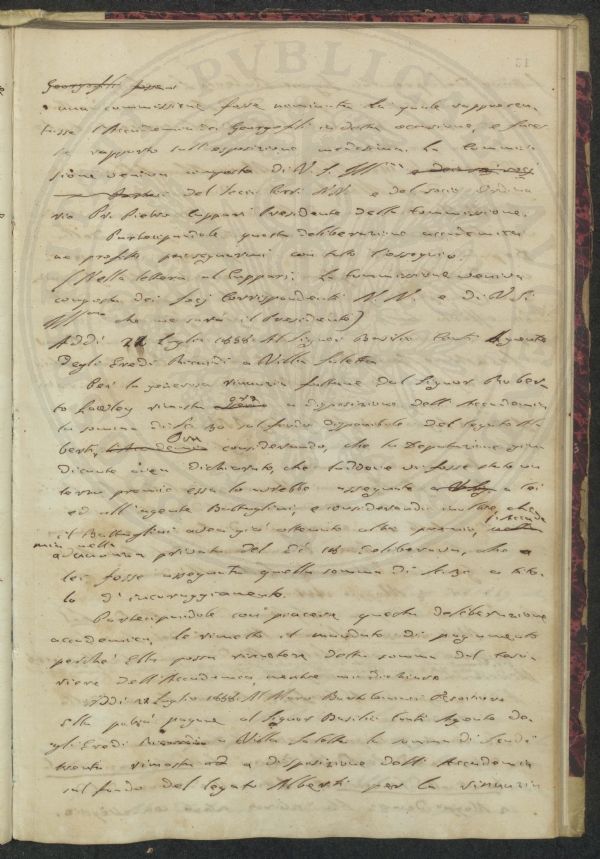 PUBLICA
13
Georgofili fosse
una commissione fosse nominata la quale rappresen
tasse l'Accademia dei Georgofili in detta occasione, e faces
se rapporto sull'esposizione medesima. La Commis
sione veniva composta di V. S. Illma e dei soci
del Socio Corr. N.N. e del socio Ordina
rio Pr. Pietro Cuppari Presidente della Commissione.
Partecipandole questa deliberazione accademica
mi profitto per segnarmi con tutto l'ossequio.
(Nella lettera al Cuppari. La Commissione veniva
composta dei Socj Corrispondenti N.N. e di V. S.
Illma che ne sarà il Presidente)
Addi 22 Luglio 1858. Al Signor Basilio Conti Agente
degli Eredi Ricciardi a Villa Saletta
Per la generosa rinunzia fattane dal Signor Rober
to Lawley rimasta ora a disposizione dell'Accademia
la somma di Sc. 30 sul fondo disponibile del legato Al
berti, l'Accademia considerando, che la Deputazione giu
dicante avea dichiarato, che laddove vi fosse stato un
terzo premio essa lo avrebbe assegnato a Lei
ed all'agente Battaglini, e considerando inoltre, che
il Battaglini avea già ottenuto altro premio, l'Accade
mia nella adunanza privata del dì 18 deliberava, che a
lei fosse assegnata quella somma di Sc. 30 a tito
lo d'incoraggiamento.
Partecipandole con piacere questa deliberazione
accademica, le rimetto il mandato di pagamento
perchè Ella possa riscotere detta somma dal tesо
riere dell'Accademia, mentre mi dichiaro
Addi 22 Luglio 1858. Al Marc. Bartolommei Tesoriere
Ella potrà pagare al Signor Basilio Conti Agente de
gli Eredi a Villa Saletta la somma di Scudi
trenta rimasta a disposizione dell'Accademia
sul fondo del legato Alberti per la rinunzia